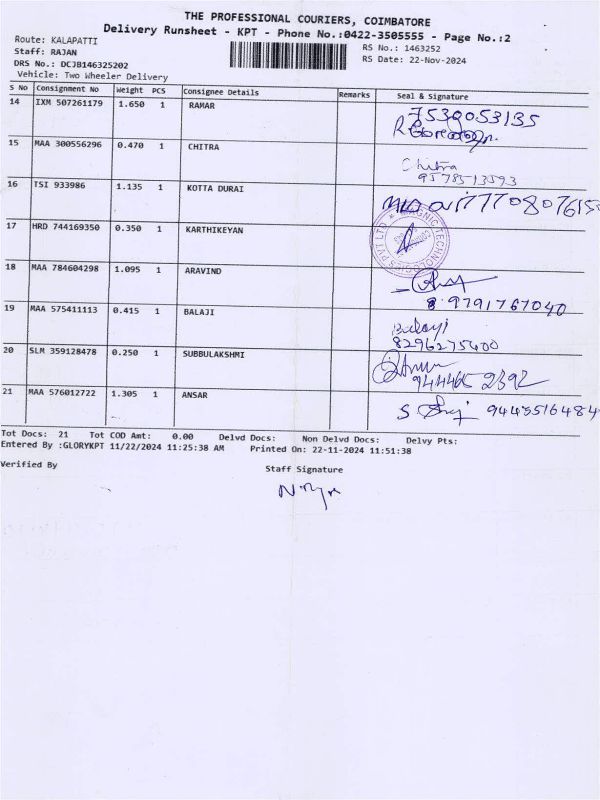 THE PROFESSIONAL COURIERS, COIMBATORE
Delivery Runsheet - KPT - Phone No.:0422-3505555 - Page No.:2
Route: KALAPATTI
Staff: RAJAN
DRS No.: DCJB146325202
Vehicle: Two Wheeler Delivery
RS No.: 1463252
RS Date: 22-Nov-2024
S No Consignment No Weight PCS Consignee Details Remarks Seal & Signature
14 IXM 507261179 1.650 1 RAMAR 7530053135
15 MAA 300556296 0.470 1 CHITRA Chitra
9578513593
16 TSI 933986 1.135 1 KOTTA DURAI
17 HRD 744169350 0.350 1 KARTHIKEYAN
18 MAA 784604298 1.095 1 ARAVIND
9791767040
19 MAA 575411113 0.415 1 BALAJI Balaji
8296275400
20 SLM 359128478 0.250 1 SUBBULAKSHMI
944465 2392
21 MAA 576012722 1.305 1 ANSAR
Tot Docs: 21 Tot COD Amt: 0.00 Delvd Docs: Non Delvd Docs: Delvy Pts:
Entered By :GLORYKPT 11/22/2024 11:25:38 AM Printed On: 22-11-2024 11:51:38
Verified By Staff Signature